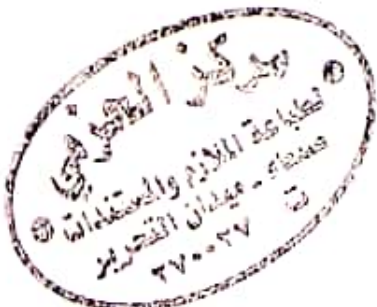 مركز العزي
لطباعة الملازم والمستندات
صنعاء - ميدان التحرير
ت ٢٧٠٠٢٧